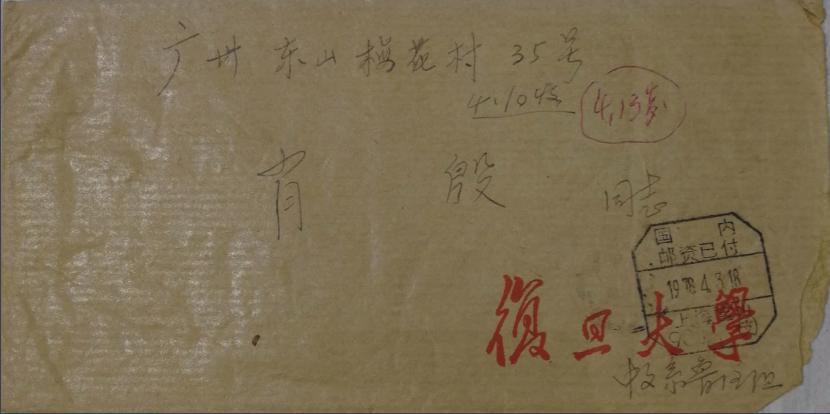 广州 东山 梅花村 35号
4.10收
4.13发
肖 殷 同志
国内
邮资已付
1978.4.3.18
上海
復旦大學
中文系鲁迅组